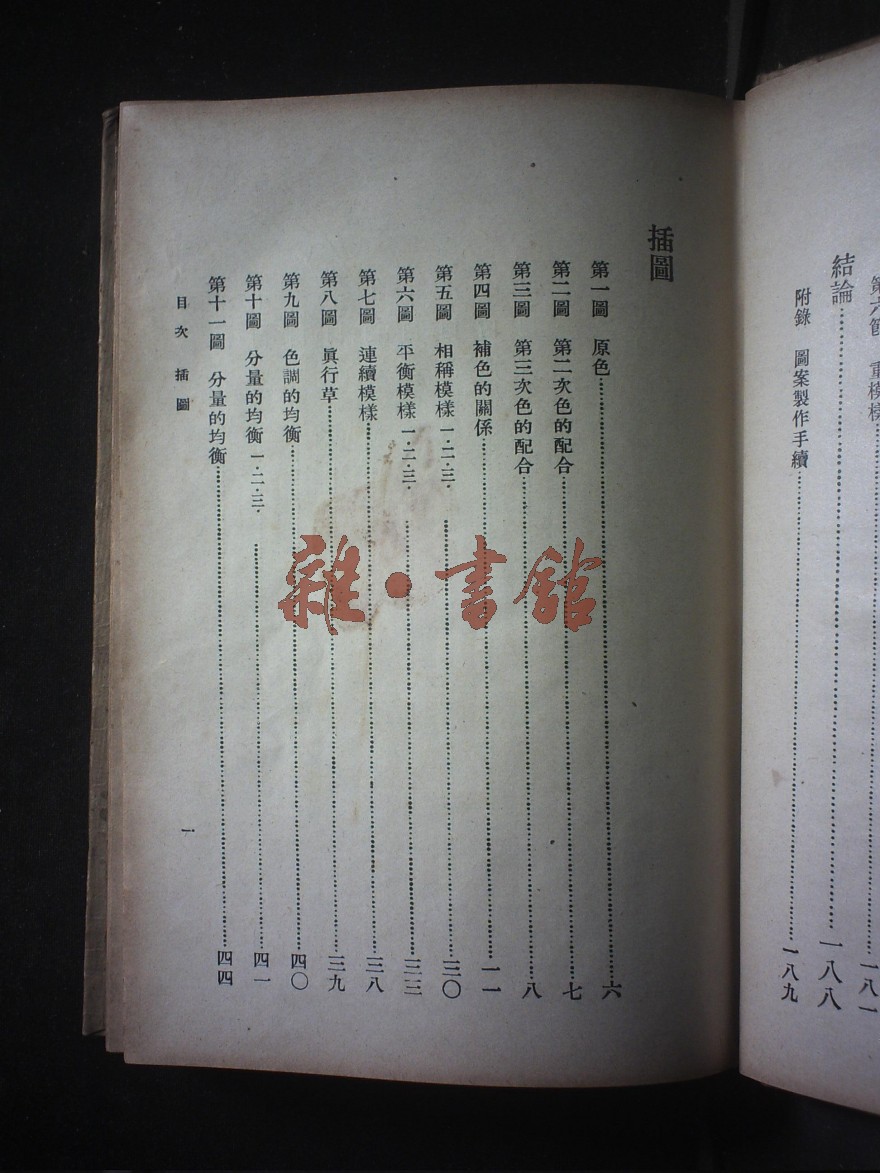 第六節 重模樣……一八一
結論……一八八
附錄 圖案製作手續……一八九
插圖
第一圖 原色……六
第二圖 第二次色的配合……七
第三圖 第三次色的配合……八
第四圖 補色的關係……一一
第五圖 相稱模樣 一·二·三·……三〇
第六圖 平衡模樣 一·二·三·……三三
第七圖 連續模樣……三八
第八圖 眞行草……三九
第九圖 色調的均衡……四〇
第十圖 分量的均衡 一·二·三·……四一
第十一圖 分量的均衡……四四
目次 插圖
一
雜·書館